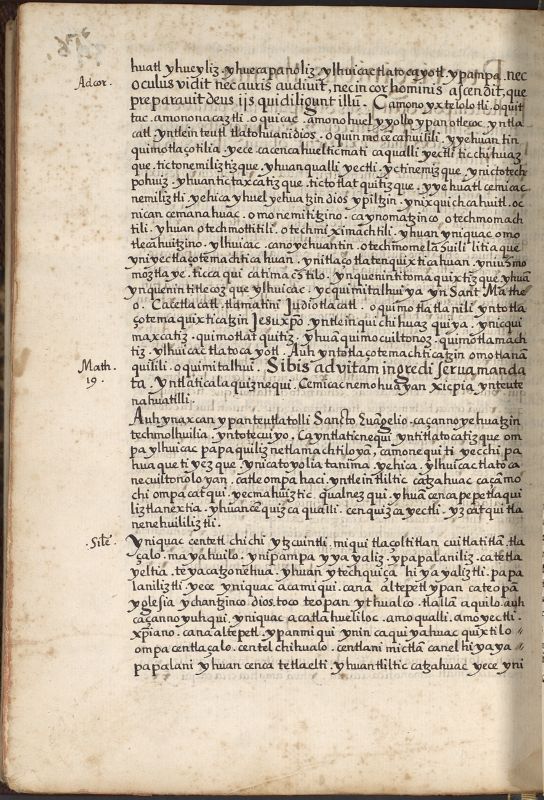 huatl yhueyliz. yhuecapanoliz. ylhuicac tlatocayotl. ypampa. nec
Ad cor.
oculus vidit nec auris audivit, nec in cor hominis ascendit, que
preparauit deus ijs qui diligunt illū. Camono yxtelolotli. oquit
tac. amono nacaztli. oquicac. amono huel yyollo ypan otlecoc. yntla
catl. yntlein teutl tlatohuani dios. oquinmocecahuilili. yyehuantin
quimotlaçotilia. yece ca cenca huelticmati ca qualli yectli ticchihuaz
que. tictonemiliztizque. yhuan qualli yectli. yc tinemizque. ynic totech
pohuiz. yhuan tictaxcatizque. tictotlatquitizque. yyehuatl cemicac
nemiliztli yehica yhuel yehuatzin dios ypiltzin. ynixquich cahuitl. oc
nican cemanahuac. omonemitizino. caynomatzinco. otechmomach
tili. yhuan otechmottitili. otechmiximachtili. yhuan yniquac omo
tlecahuitzino. ylhuicac. canoyehuantin. otechmomelahuililitiaque
yniyectlaçotemachticahuan. ynitlaçotlatenquixticahuan. yniuhmo
moztlaye. ticcaqui catimacstilo. ynquenin titomaquixtizque yhuā
ynquenin titlecoz que ylhuicac. yc quimitalhui ya yn Sant Mathe
o. Cacetlacatl. tlamatini Judiotlacatl. oquimotlatlanili yntotla
çotemaquixticatzin Jesu xpō. yntlein quichihuaz quiya. ynicqui
maxcatiz. quimotlatquitiz. yhuā quimocuiltonoz. quimotlamach
tiz. ylhuicac tlatocayotl. Auh yntotlaçotemachticatzin omotlanā
Math.
19.
quilili. oquimitalhui. Si bis ad vitam ingredi serua manda
ta. yntlaticalaquiznequi. Cemicac nemohuayan xicpia yn teute
nahuatilli.
Auh ynaxcan ypan teutlatolli Sancto Euāgelio. caçanno yehuatzin
techmolhuilia. yntotecuiyo. Cayntlaticnequi yntitlatocatizque om
pa ylhuicac papaquiliz netlamachtiloyā, camonequi ti yecchipa
huaque tiyezque ynicatoyolia tanima. yehica. ylhuicac tlatoca
necuiltonoloyan. catle ompa haci yntlein tliltic catzahuac caçāmo
chi ompa catqui. yecmahuiztic. qualnezqui. yhuā cenca pepetlaqui
liztlanextia. yhuancēquizca qualli. cenquizca yectli. yzcatqui tla
nenehuililiztli.
Site.
Yniquac centetl chichi ytzcuintli. miqui tlacoltitlan cuitlatitlā. tla
çalo. mayahuilo. ynipampa yyayaliz. ypapalaniliz. catetla
yeltia. teyacatzonehua. yhuan ytechquiça hiyayaliztli. papa
laniliztli. yece yniquac acamiqui. cana altepetl ypan cateopā
yglesia ychantzinco dios. toco teopan ythualco. tlallā aquilo. auh
caçanno yuhqui, yniquac acatlahueliloc. amoqualli. amo yectli.
xpiano. cana altepetl. ypanmiqui ynin caquiyahuac quixtilo
ompa centlaçalo. centelchihualo. centlani mictlā canel hiyaya
papalani yhuan cenca tetlaelti. yhuan tliltic catzahuac yece yni